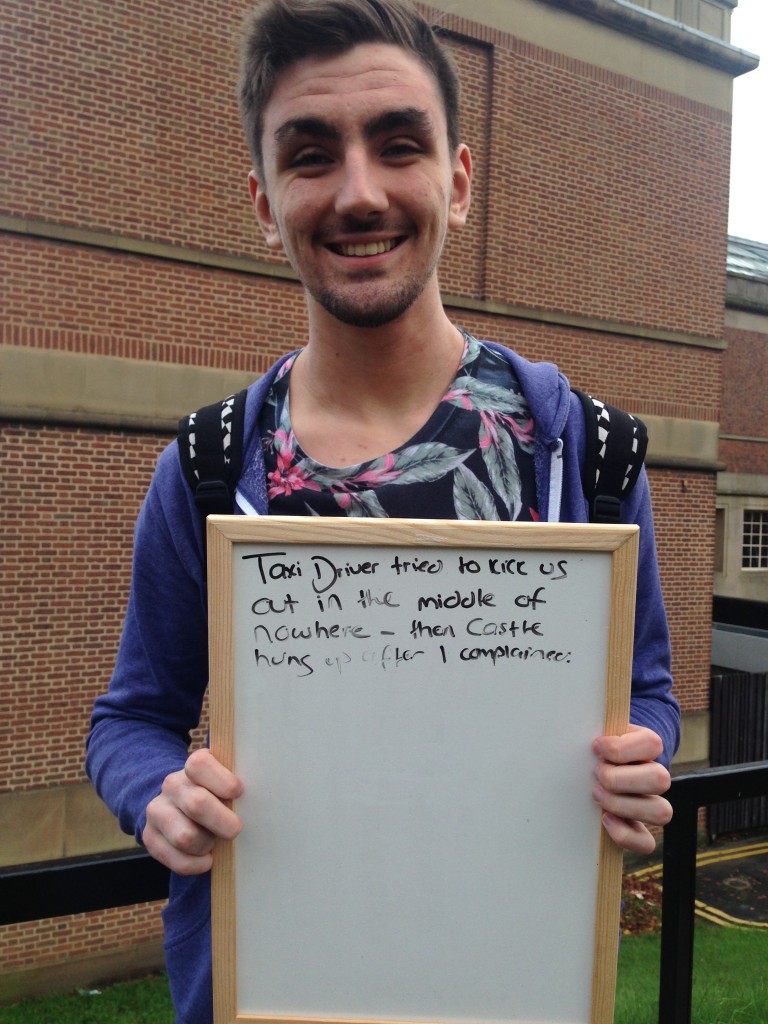 Taxi Driver tried to kick us
out in the middle of
nowhere - then Castle
hung up after I complained.